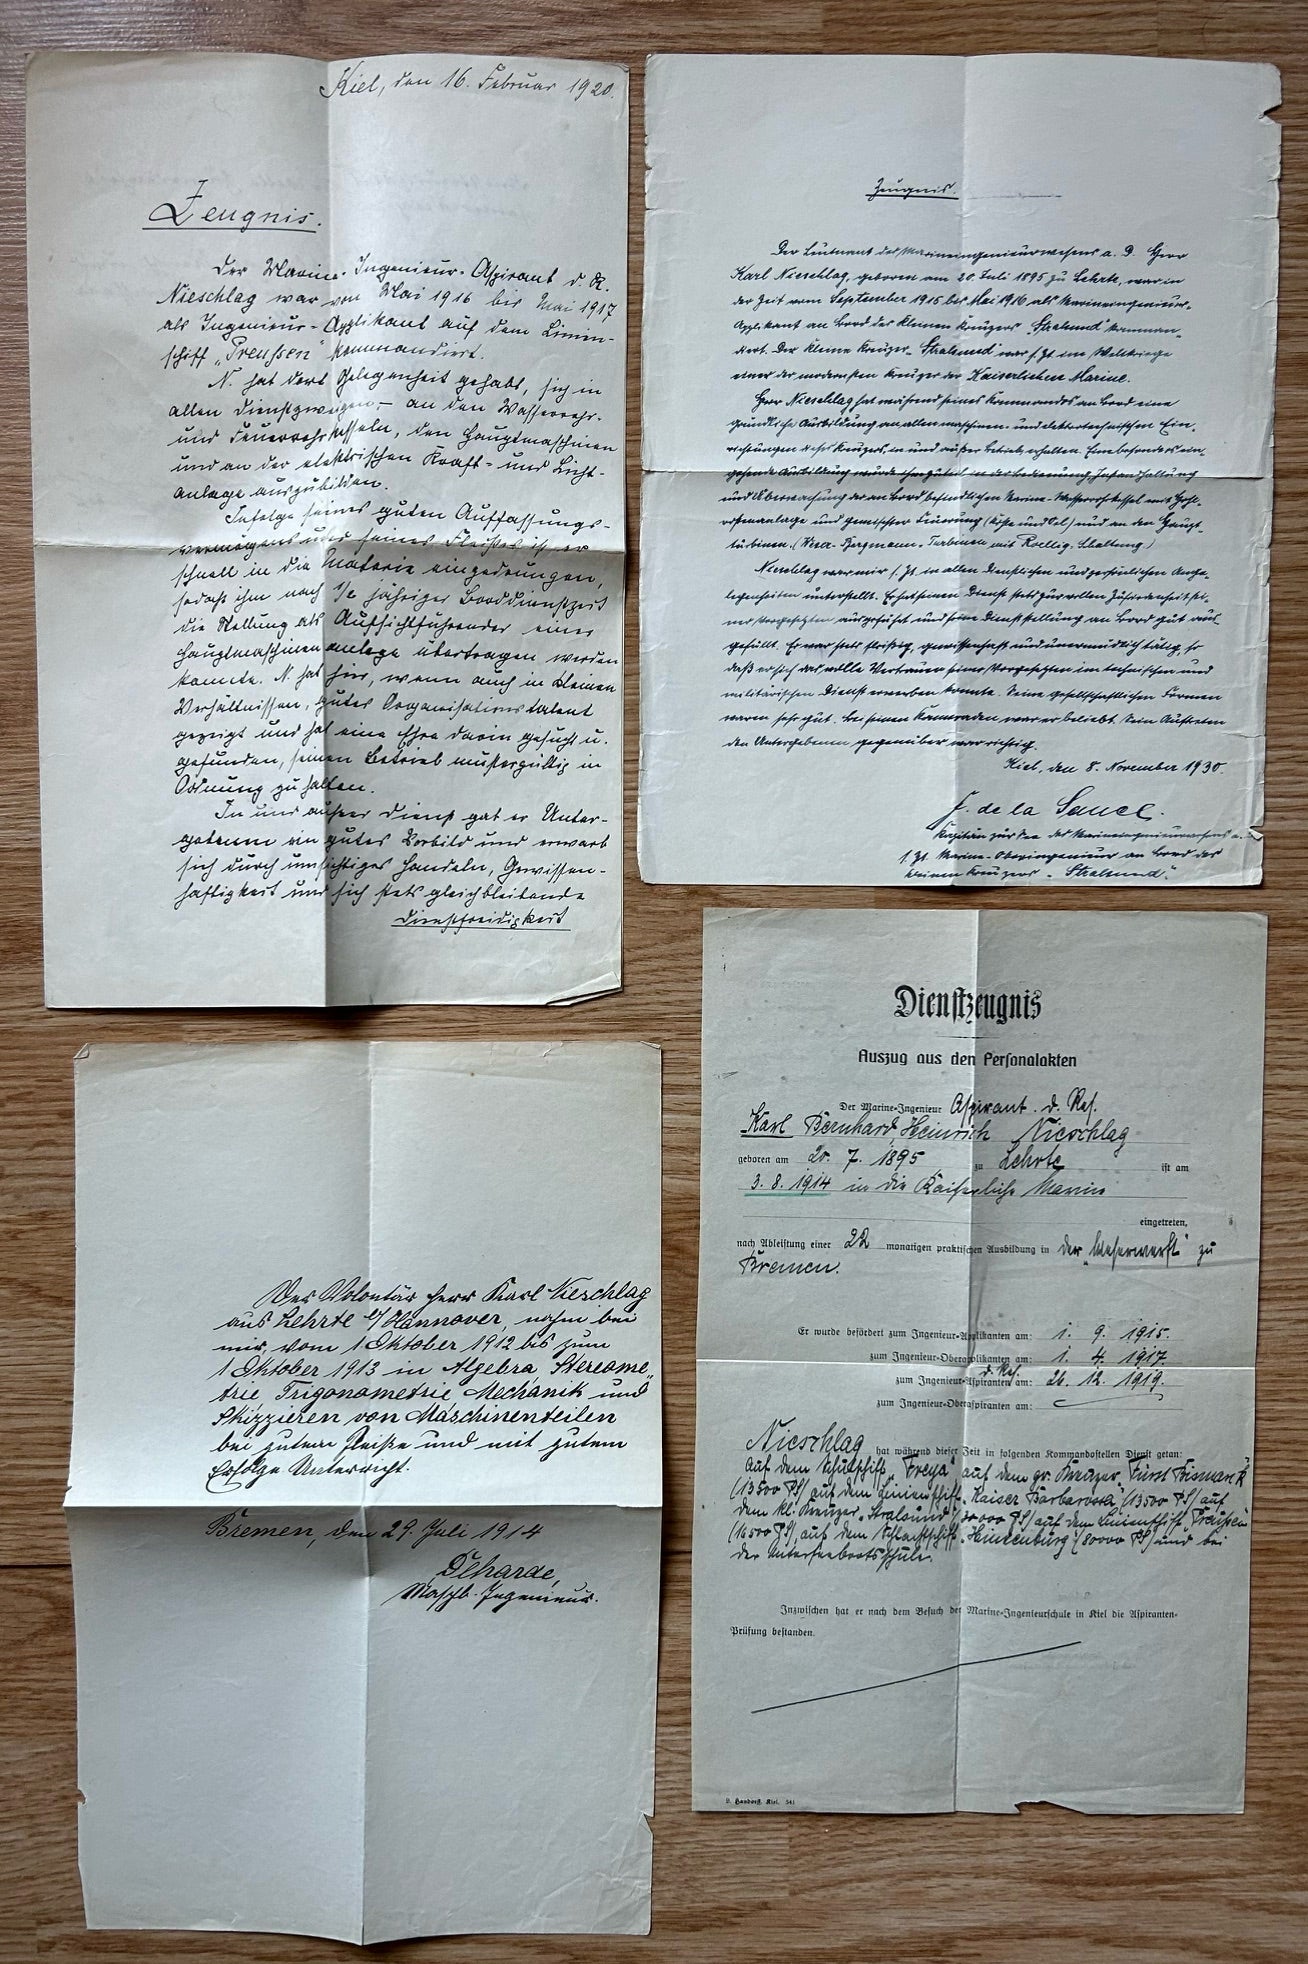 Kiel, den 16. Februar 1920.
Zeugnis.
Der Marine-Ingenieur-Aspirant d. R.
Nieschlag war von Mai 1916 bis Mai 1917
als Ingenieur-Applikant auf dem Linien-
schiff „Preußen" kommandiert.
N. hat dort Gelegenheit gehabt, sich in
allen Dienstzweigen, – an den Wasserrohr-
und Feuerrohrkesseln, den Hauptmaschinen
und an der elektrischen Kraft- und Licht-
anlage auszubilden.
Infolge seines guten Auffassungs-
vermögens und seines Fleißes ist er
schnell in die Materie eingedrungen,
sodaß ihm nach 1/2 jähriger Borddienstzeit
die Stellung als Aufsichtführender einer
Hauptmaschinenanlage übertragen werden
konnte. N. hat hier, wenn auch in kleinen
Verhältnissen, gutes Organisationstalent
gezeigt und hat eine Ehre darin gesucht u.
gefunden, seinen Betrieb mustergültig in
Ordnung zu halten.
In und außer Dienst gab er Unter-
gebenen ein gutes Vorbild und erwarb
sich durch umsichtiges Handeln, Gewissen-
haftigkeit und sich stets gleichbleibende
Dienstfreudigkeit
Zeugnis.
Der Leutnant des Marineingenieurwesens a. D. Herr
Karl Nieschlag, geboren am 20. Juli 1895 zu Lehrte, war in
der Zeit vom September 1915 bis Mai 1916 als Marineingenieur-
Applikant an Bord des Kleinen Kreuzers „Stralsund" komman-
diert. Der kleine Kreuzer „Stralsund" war s. Zt. im Weltkriege
einer der modernsten Kreuzer der Kaiserlichen Marine.
Herr Nieschlag hat während seines Kommandos an Bord eine
gründliche Ausbildung an allen maschinen- und elektrotechnischen Ein-
richtungen dieses Kreuzers, in und außer Betrieb, erhalten. Eine besonders ein-
gehende Ausbildung wurde ihm zuteil in der Bedienung, Instandhaltung
und Überwachung der an Bord befindlichen Marine-Wasserrohrkessel mit
und gemischter Feuerung (Kohle und Oel) und an den Haupt-
turbinen. (Weser-Bergmann-Turbinen mit Schaltung.)
Nieschlag war mir s. Zt. in allen dienstlichen und persönlichen Ange-
legenheiten unterstellt. Er hat seinen Dienst stets zur vollen Zufriedenheit sei-
ner Vorgesetzten ausgeführt und seine Dienststellung an Bord gut aus-
gefüllt. Er war stets fleißig, gewissenhaft und unermüdlich tätig, so
daß er sich das volle Vertrauen seiner Vorgesetzten im technischen und
militärischen Dienst erwerben konnte. Seine gesellschaftlichen Formen
waren sehr gut. Bei seinen Kameraden war er beliebt. Sein Auftreten
den Untergebenen gegenüber war richtig.
Kiel, den 8. November 1930.
de la
Kapitän zur See des Marineingenieurwesens a.
s. Zt. Marine-Oberingenieur an Bord des
kleinen Kreuzers „Stralsund".
Der Volontär Herr Karl Nieschlag
aus Lehrte b/Hannover, nahm bei
mir, vom 1 Oktober 1912 bis zum
1 Oktober 1913 in Algebra, Stereome-
trie Trigonometrie Mechanik und
Skizzieren von Maschinenteilen
bei gutem Fleiße und mit gutem
Erfolge Unterricht.
Bremen, den 29. Juli 1914
Deharde,
Maschb. Ingenieur.
Dienstzeugnis
Auszug aus den Personalakten
Der Marine-Ingenieur Aspirant d. Res.
Karl Bernhard, Heinrich Nieschlag
geboren am 20. 7. 1895 zu Lehrte ist am
3. 8. 1914 in die Kaiserliche Marine
eingetreten,
nach Ableistung einer 22 monatigen praktischen Ausbildung in der „Weserwerft" zu
Bremen.
Er wurde befördert zum Ingenieur-Applikanten am: 1. 9. 1915.
zum Ingenieur-Oberapplikanten am: 1. 4. 1917.
d. Res.
zum Ingenieur-Aspiranten am: 26. 12. 1919.
zum Ingenieur-Oberaspiranten am:
Nieschlag hat während dieser Zeit in folgenden Kommandostellen Dienst getan:
Auf dem Schulschiff „Freya" auf dem gr. Kreuzer „Fürst Bismarck"
(13500 PS) auf dem Linienschiff „Kaiser Barbarossa" (13500 PS) auf
dem kl. Kreuzer „Stralsund" (30000 PS) auf dem Linienschiff „Preußen"
(16500 PS) auf dem Schlachtschiff „Hindenburg" (80000 PS) und bei
der Unterseebootsschule.
Inzwischen hat er nach dem Besuch der Marine-Ingenieurschule in Kiel die Aspiranten-
Prüfung bestanden.
Handorff, Kiel. 541